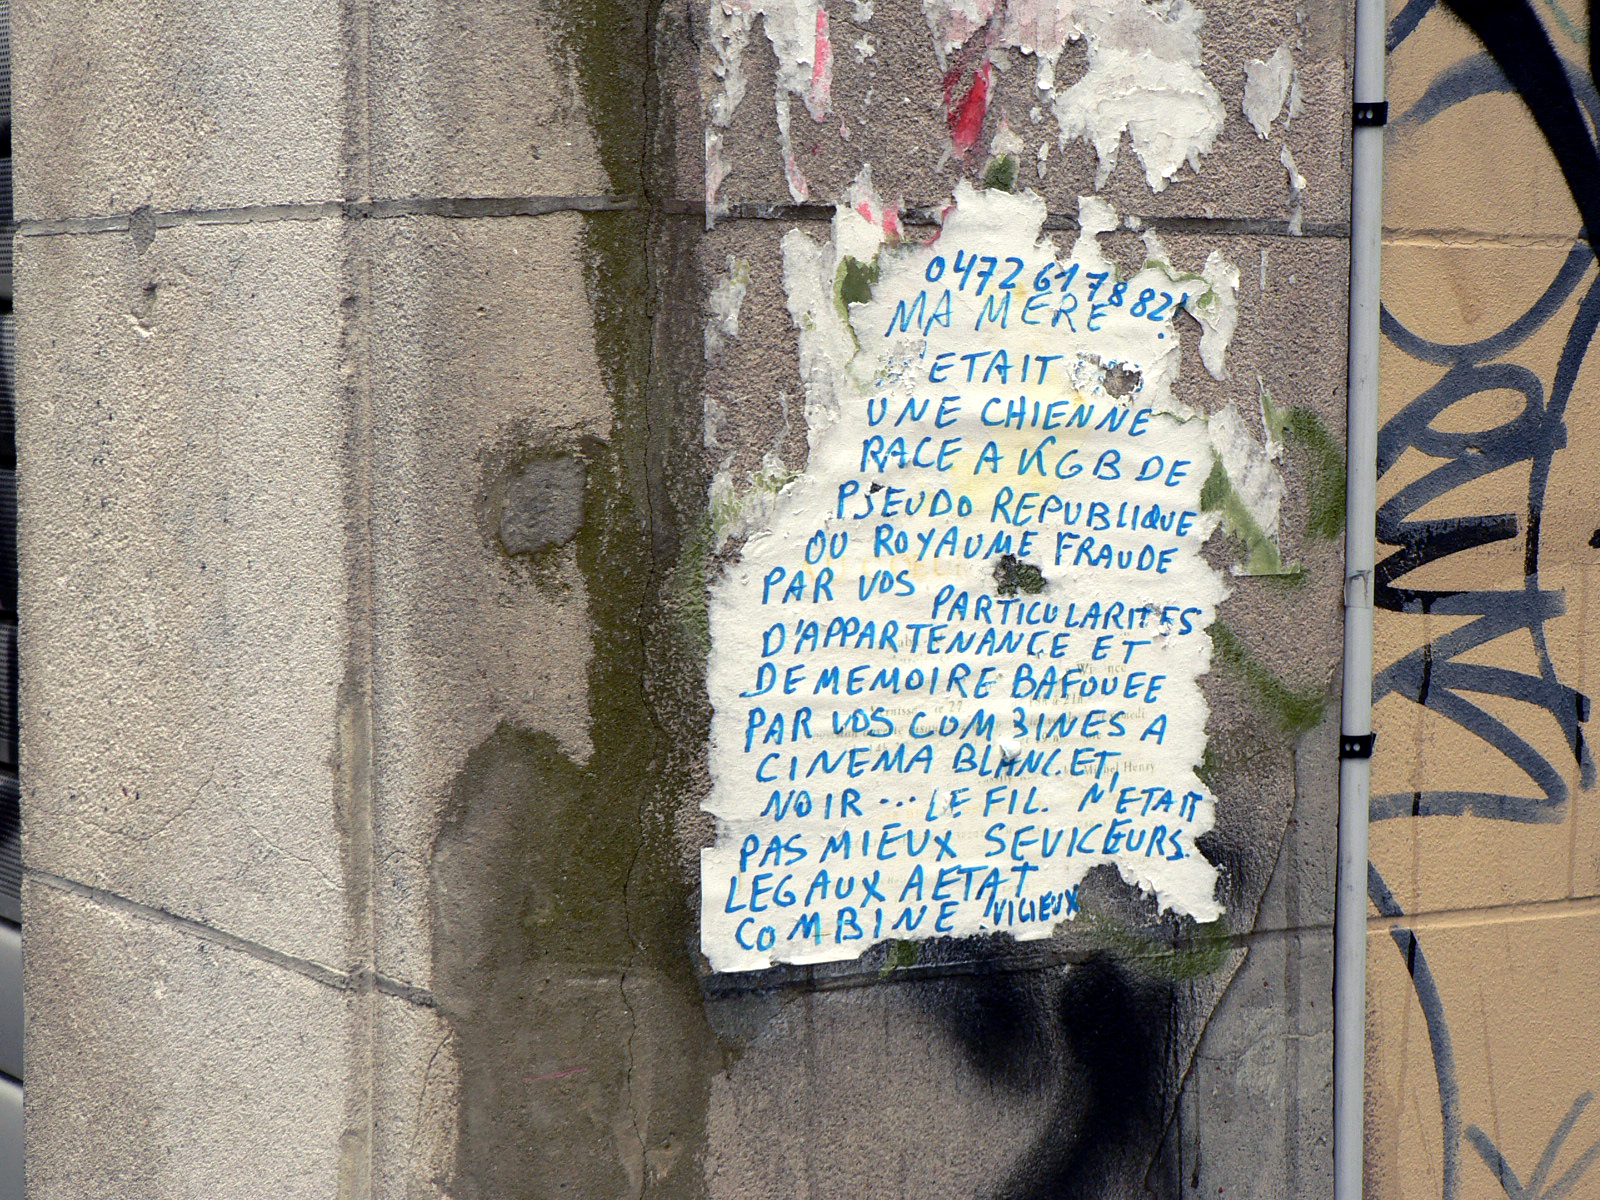 0472 61 78 82!
MA MERE
ETAIT
UNE CHIENNE
RACE A KGB DE
PSEUDO REPUBLIQUE
OU ROYAUME FRAUDE
PAR VOS PARTICULARITES
D'APPARTENANCE ET
DE MEMOIRE BAFOUEE
PAR VOS COMBINES A
CINEMA BLANC.ET,
NOIR ... LE FIL. N'ETAIT
PAS MIEUX SEVICEURS.
LEGAUX A ETAT
COMBINE. VICIEUX